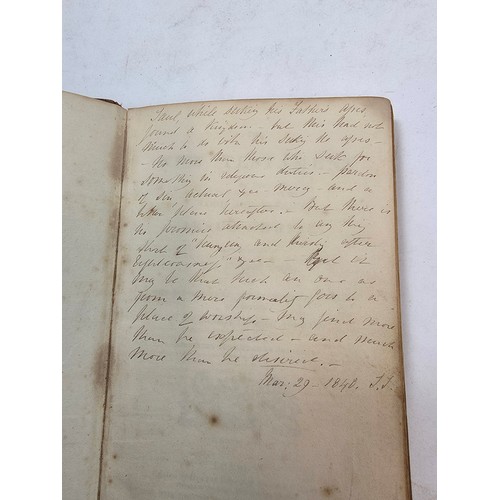 Saul, while seeking his Father's asses,
found a Kingdom. but this had not
much to do with his seeking the asses -
- No more than those who seek for
something in religious duties - pardon
of sin actual &c - mercy - and a
place hereafter. - But there is
no promise attached to any thing
short of "hungering and thirsty after
righteousness," &c - it
may be that such an one as
from a mere formality goes to a
place of worship - may find more
than he expected - and much
more than he desired. -
Mar: 29 - 1840. J.J.